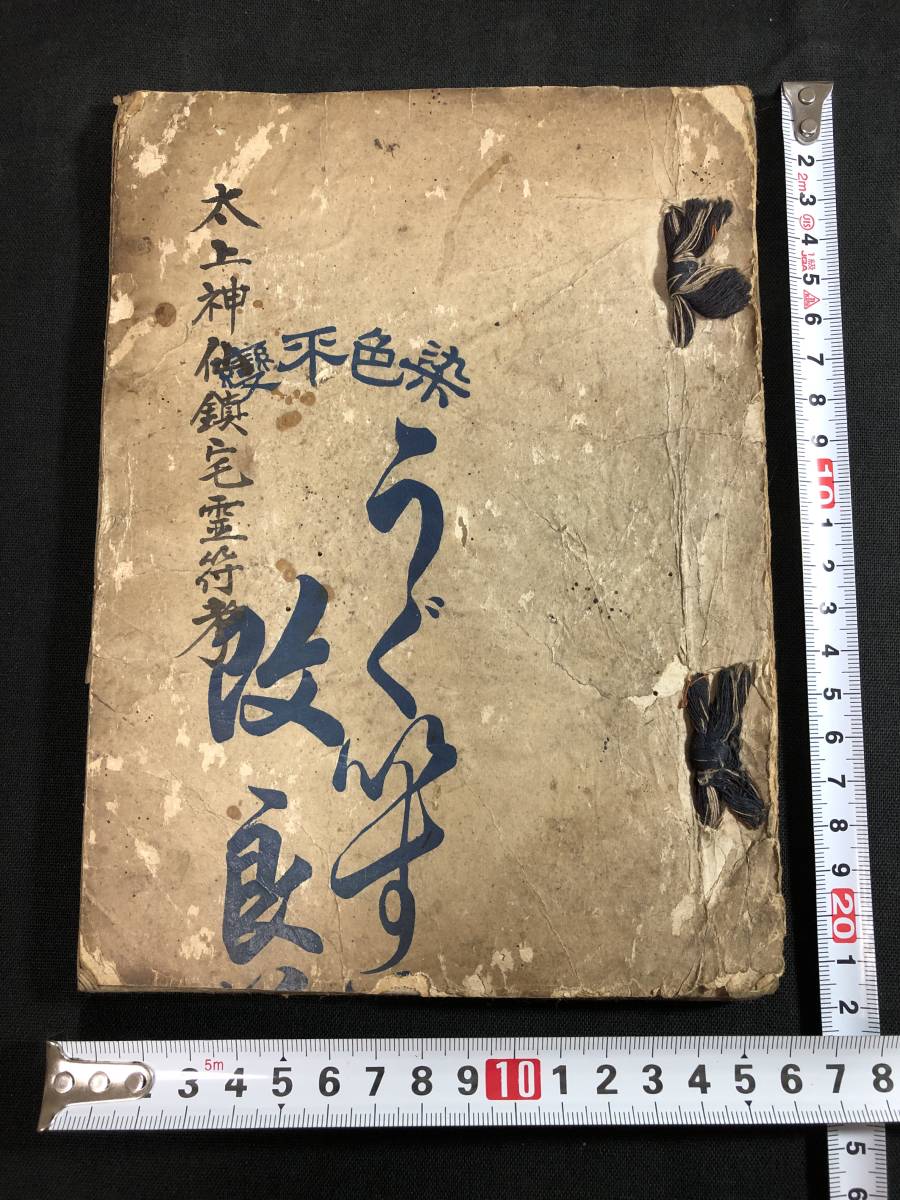 太上神仙鎮宅霊符考
染色不變
うぐいす
改良
2 3 4 5 6 7 8 9 10 1 2 3 4 5 6 7 8 9 20 1 2
2m JIS 1級
5m
3 4 5 6 7 8 9 10 1 2 3 4 5 6 7 8
5 6